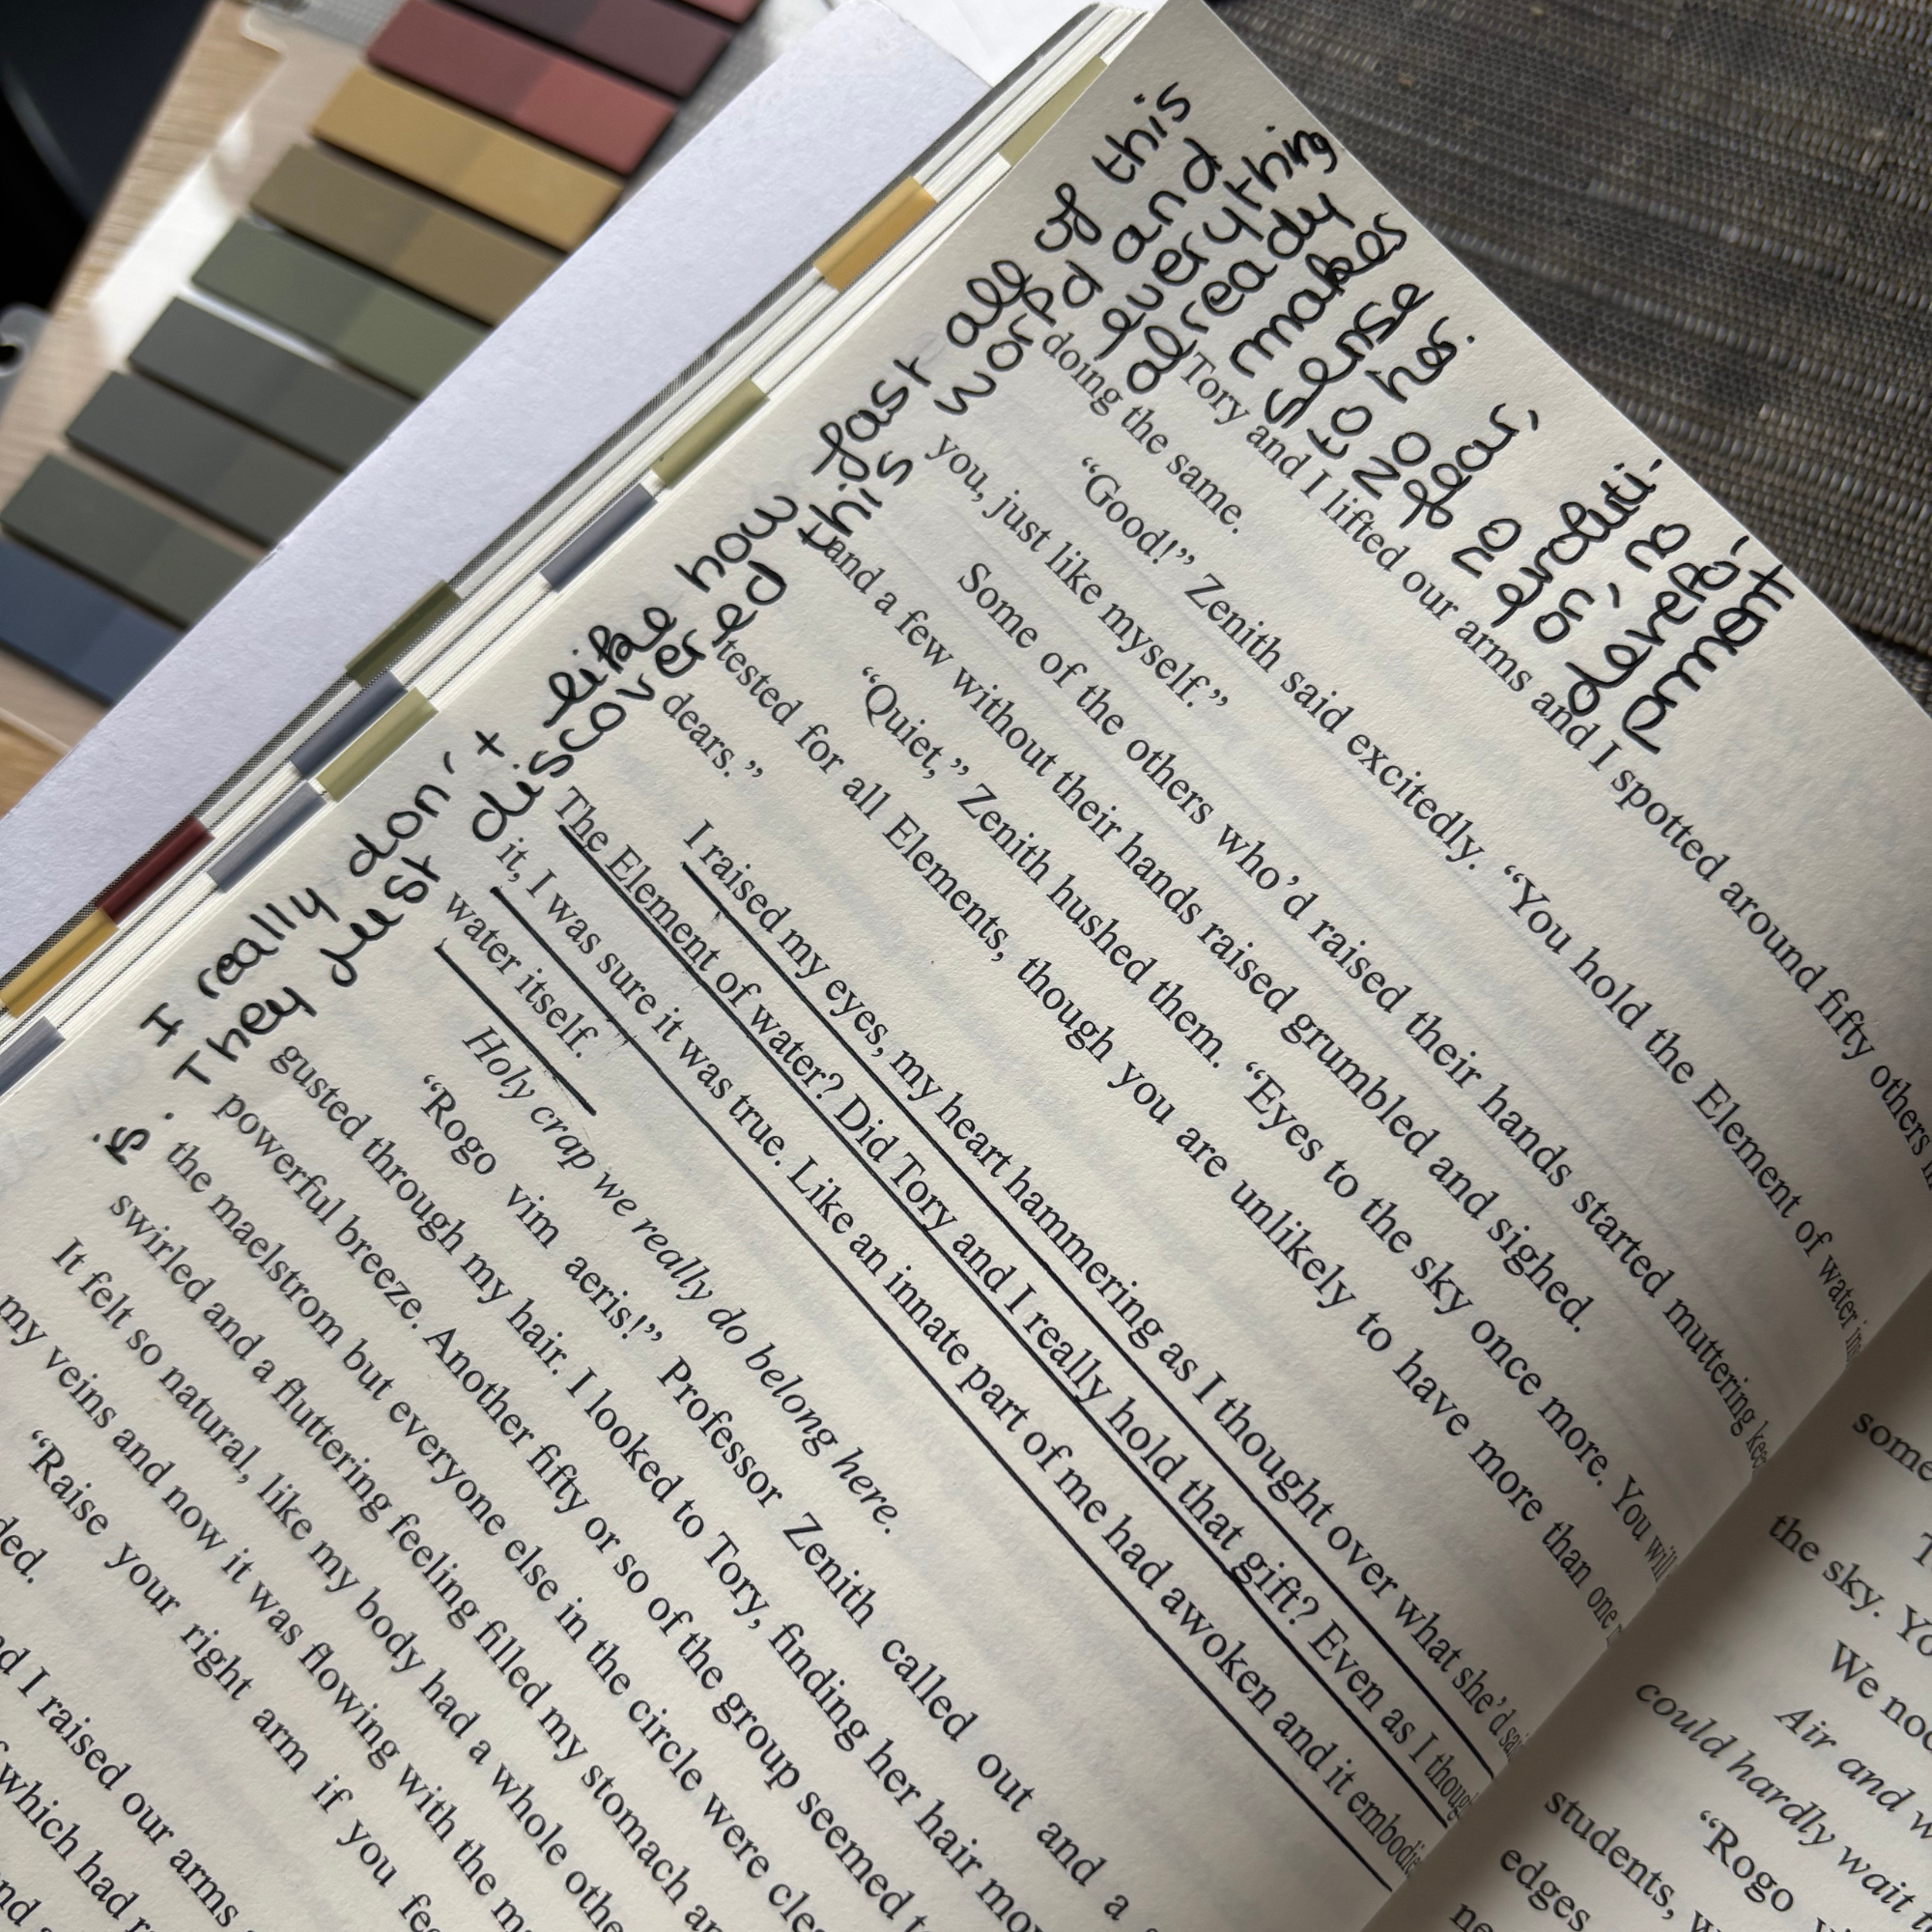 I really don't like how fast all of this
is. They just discovered this world and
everything
already
makes
sense
to her.
No
fear,
no
evoluti-
on, no
develop-
ment
Tory and I lifted our arms and I spotted around fifty others
doing the same.
“Good!” Zenith said excitedly. “You hold the Element of water
you, just like myself.”
Some of the others who’d raised their hands started muttering
and a few without their hands raised grumbled and sighed.
“Quiet,” Zenith hushed them. “Eyes to the sky once more. You will
tested for all Elements, though you are unlikely to have more than one
dears.”
I raised my eyes, my heart hammering as I thought over what she’d
The Element of water? Did Tory and I really hold that gift? Even as I
it, I was sure it was true. Like an innate part of me had awoken and it
water itself.
Holy crap we really do belong here.
“Rogo vim aeris!” Professor Zenith called out and a
gusted through my hair. I looked to Tory, finding her hair
powerful breeze. Another fifty or so of the group seemed
the maelstrom but everyone else in the circle were
swirled and a fluttering feeling filled my stomach
It felt so natural, like my body had a whole
my veins and now it was flowing with the
“Raise your right arm if you
I raised our arms
which had
some
the sky.
We
Air and
could hardly wait
“Rogo
students,
edges